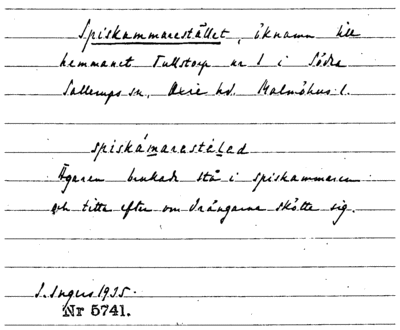 Spiskammarestället, öknamn till
hemmanet Tullstorp nr 1 i Södra
Sallerups sn, Oxie hd. Malmöhus l.
spiskámarestéled
Ägaren brukade stå i spiskammaren
och titta efter om drängarna skötte sig.
S. Ingers 1935.
Nr 5741.